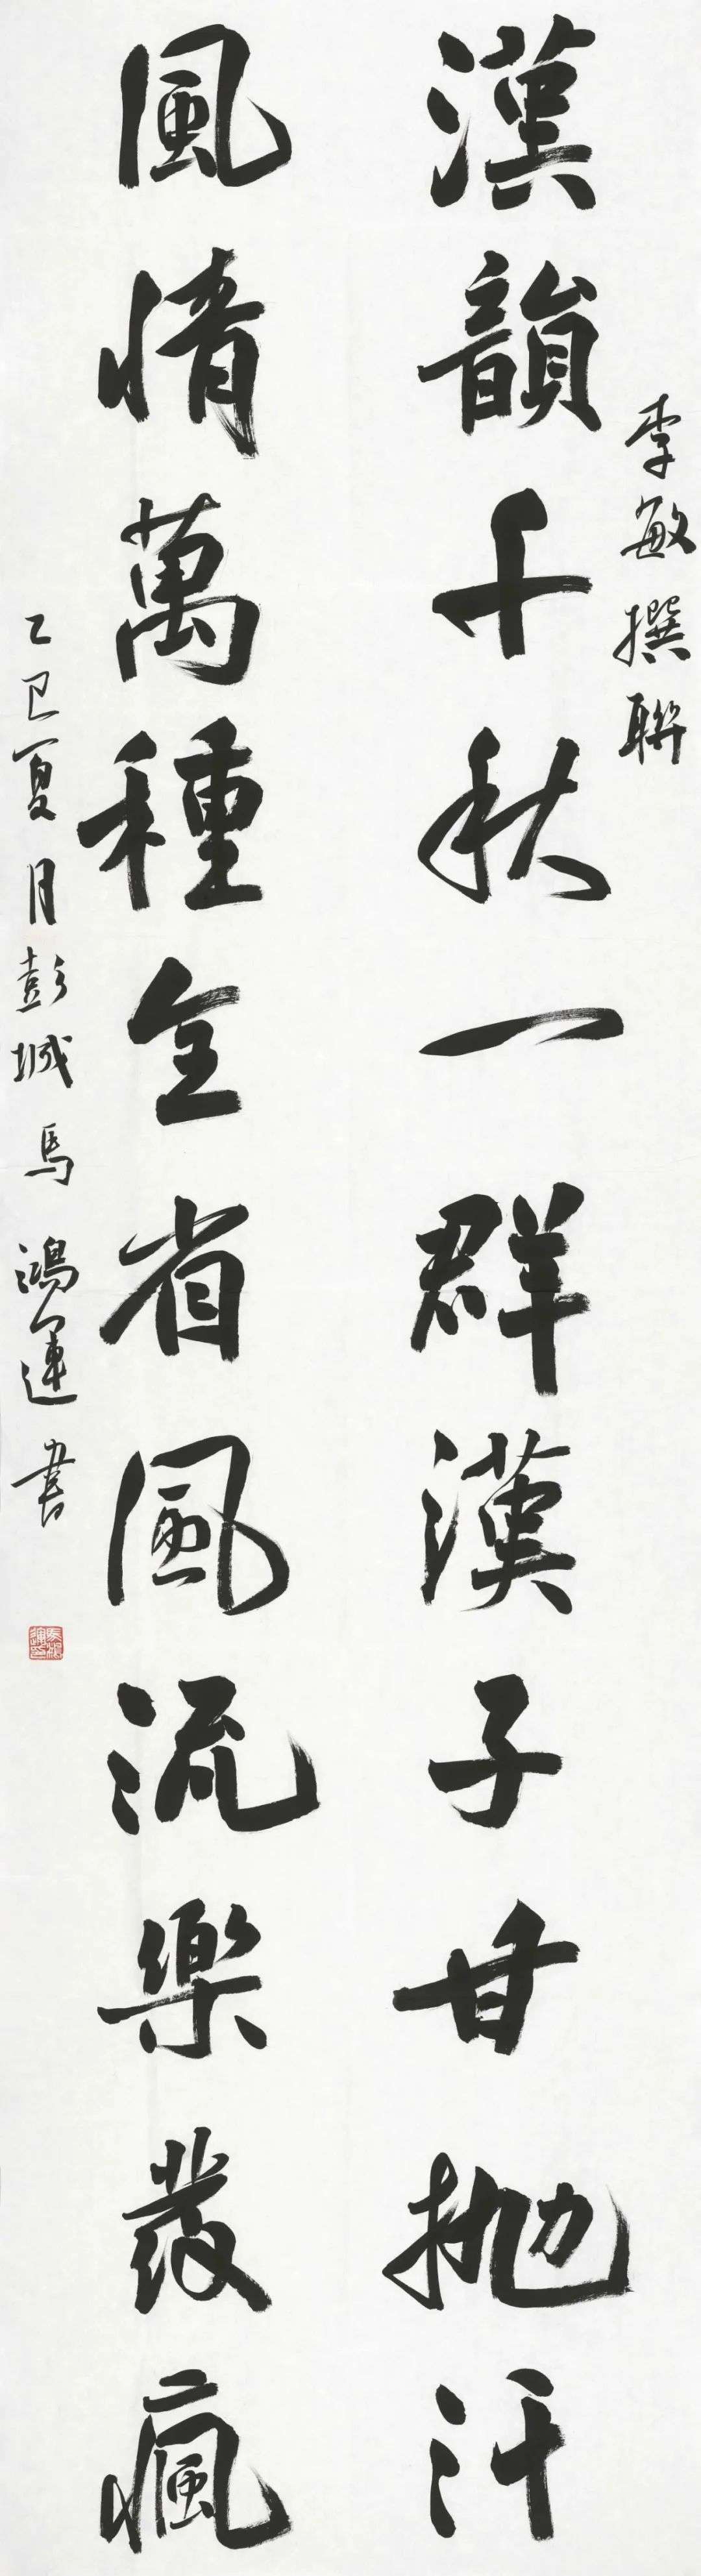 漢韻千秋一群漢子甘抛汗
李敏撰聯
風情萬種全省風流樂發瘋
乙巳夏月彭城馬鴻運書